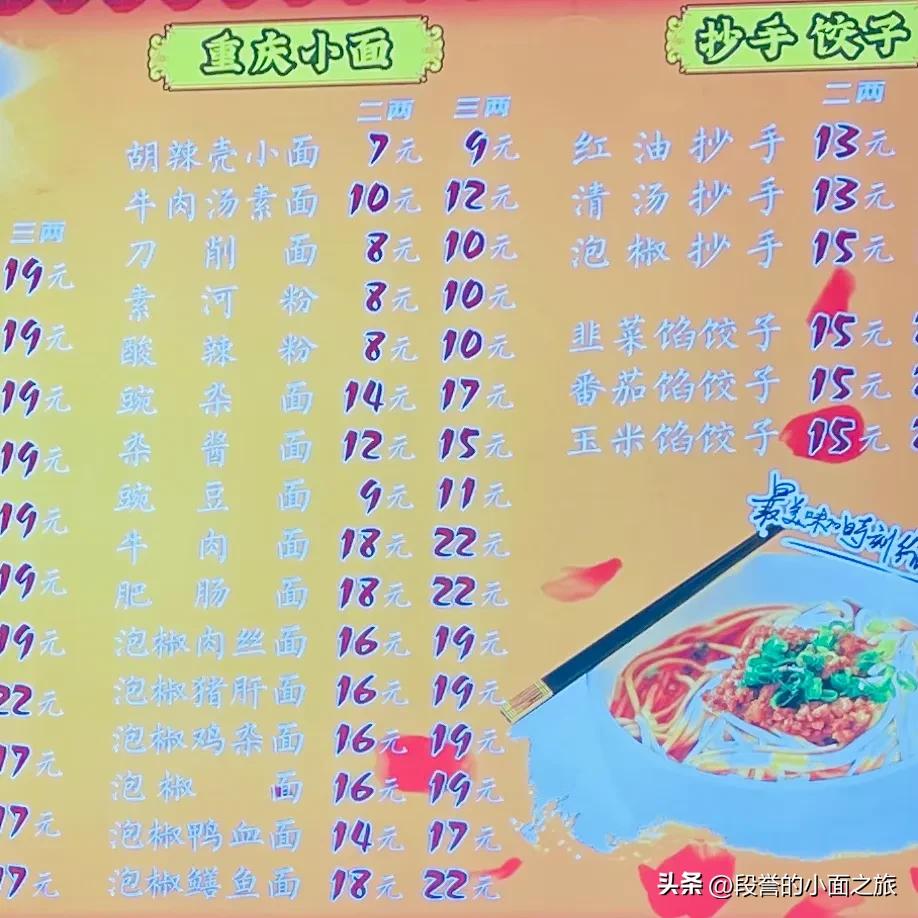 重庆小面
二两 三两
胡辣壳小面 7元 9元
牛肉汤素面 10元 12元
刀削面 8元 10元
素河粉 8元 10元
酸辣粉 8元 10元
豌杂面 14元 17元
杂酱面 12元 15元
豌豆面 9元 11元
牛肉面 18元 22元
肥肠面 18元 22元
泡椒肉丝面 16元 19元
泡椒猪肝面 16元 19元
泡椒鸡杂面 16元 19元
泡椒 面 16元 19元
泡椒鸭血面 14元 17元
泡椒鳝鱼面 18元 22元
三两
19元
19元
19元
19元
19元
19元
19元
22元
17元
17元
17元
抄手 饺子
二两
红油抄手 13元
清汤抄手 13元
泡椒抄手 15元
韭菜馅饺子 15元
番茄馅饺子 15元
玉米馅饺子 15元
最美味的时刻
头条 @段誉的小面之旅